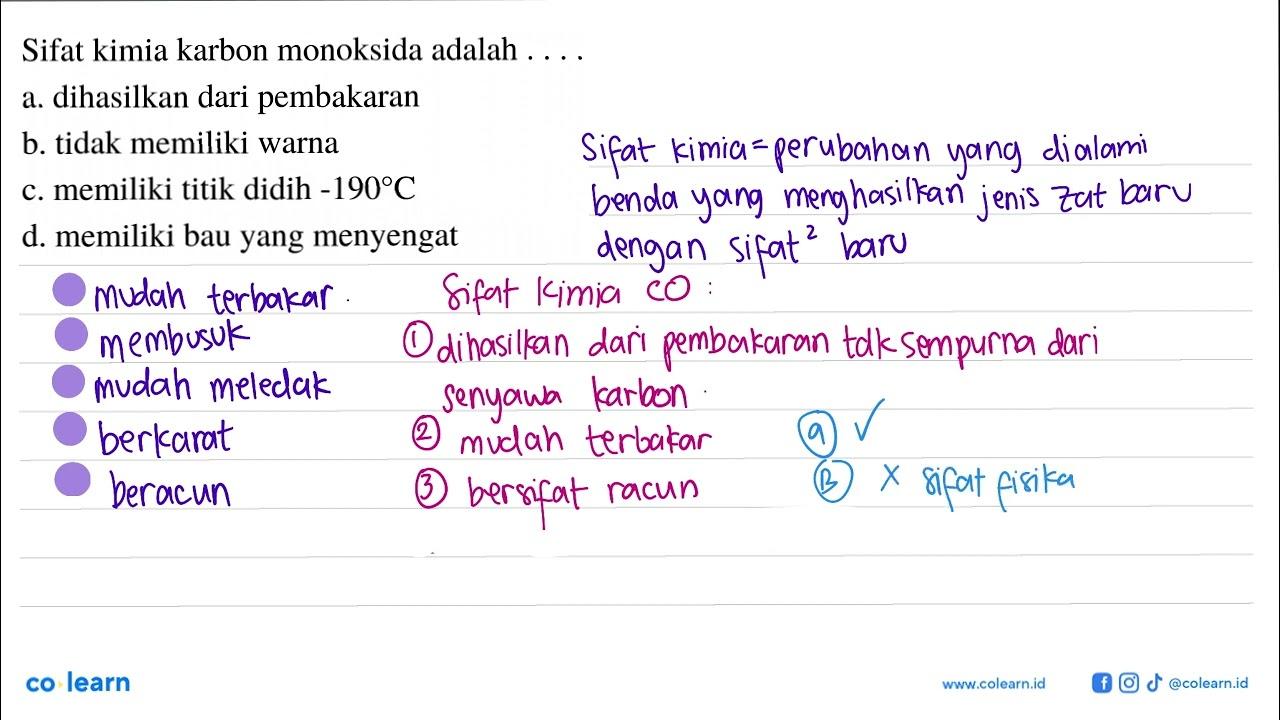 Sifat kimia karbon monoksida adalah . . . .
a. dihasilkan dari pembakaran
b. tidak memiliki warna
c. memiliki titik didih -190°C
d. memiliki bau yang menyengat
Sifat kimia = perubahan yang dialami
benda yang menghasilkan jenis zat baru
dengan sifat² baru
mudah terbakar
membusuk
mudah meledak
berkarat
beracun
Sifat kimia CO :
① dihasilkan dari pembakaran tdk sempurna dari
senyawa karbon
② mudah terbakar
③ bersifat racun
ⓐ ✓
Ⓑ × sifat fisika
co learn
www.colearn.id
@colearn.id